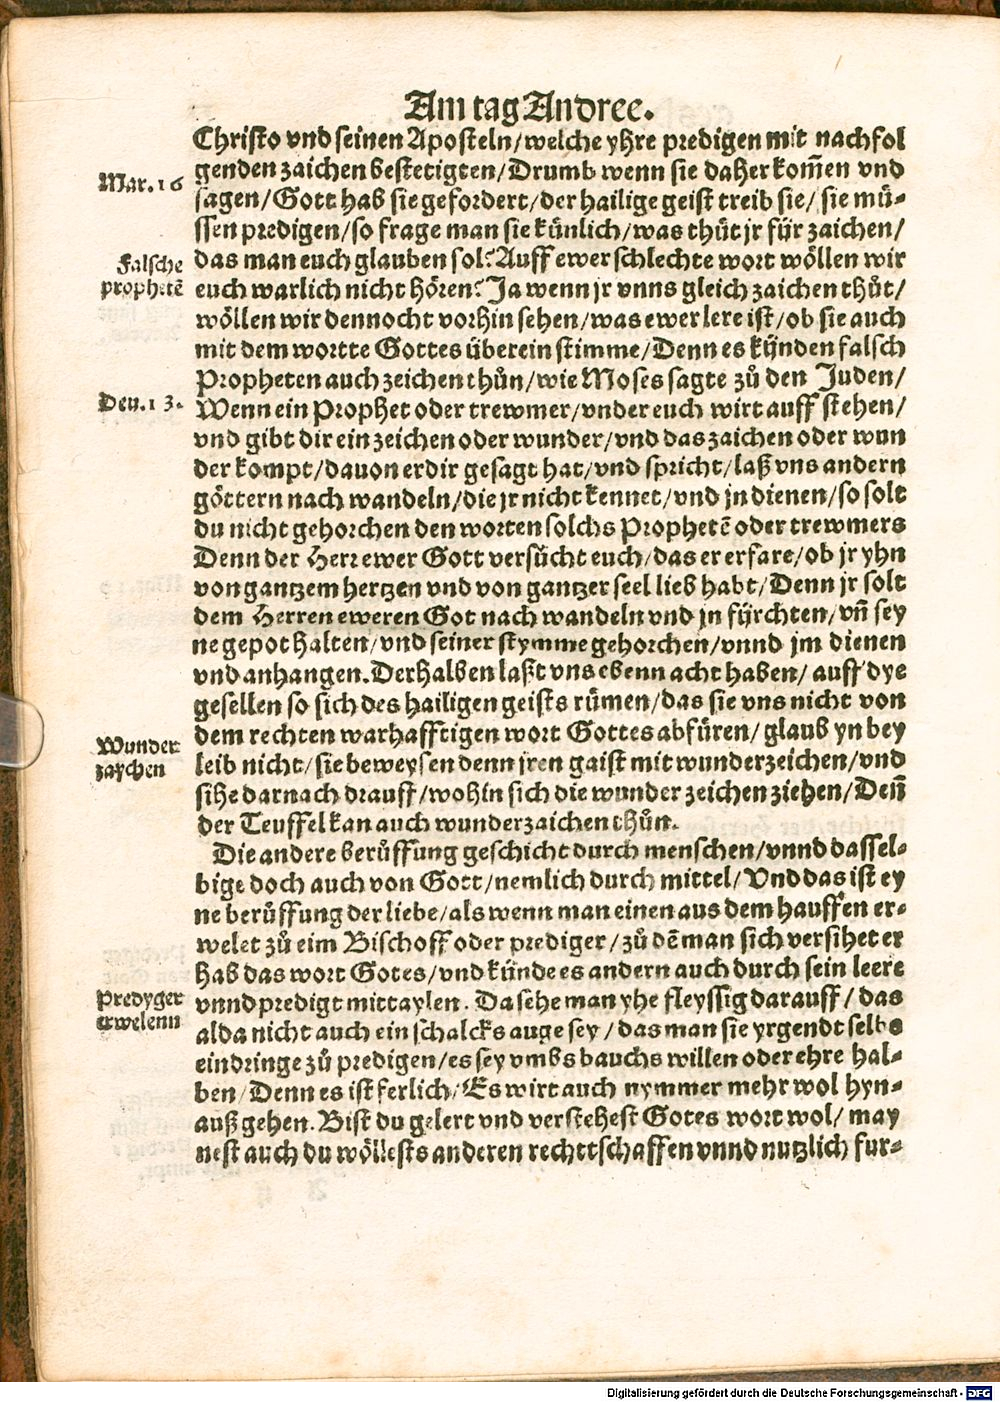 Am tag Andree.
Christo vnd seinen Aposteln/welche yhre predigen mit nachfol
Mar. 16
genden zaichen bestetigten/Drumb wenn sie daher kom̃en vnd
sagen/Gott hab sie gefordert/der hailige geist treib sie/sie mü-
ssen predigen/so frage man sie künlich/was thůt jr für zaichen/
Falsche
prophetē
das man euch glauben sol? Auff ewer schlechte wort wöllen wir
euch warlich nicht hören? Ja wenn jr vnns gleich zaichen thůt/
wöllen wir dennocht vorhin sehen/was ewer lere ist/ob sie auch
mit dem wortte Gottes überein stimme/Denn es künden falsch
Propheten auch zeichen thůn/wie Moses sagte zů den Juden/
Deu. 1 3.
Wenn ein Prophet oder trewmer/vnder euch wirt auff stehen/
vnd gibt dir ein zeichen oder wunder/vnd das zaichen oder wun
der kompt/dauon er dir gesagt hat/vnd spricht/laß vns andern
göttern nach wandeln/die jr nicht kennet/vnd jn dienen/so solt
du nicht gehorchen den worten solchs Prophetē oder trewmers
Denn der Herr ewer Gott versůcht euch/das er erfare/ob jr yhn
von gantzem hertzen vnd von gantzer seel lieb habt/Denn jr solt
dem Herren eweren Got nach wandeln vnd jn fürchten/vñ sey
ne gepot halten/vnd seiner stymme gehorchen/vnnd jm dienen
vnd anhangen. Derhalben laßt vns ebenn acht haben/auff dye
gesellen so sich des hailigen geists rümen/das sie vns nicht von
dem rechten warhafftigen wort Gottes abfüren/glaub yn bey
Wunder
zaychen
leib nicht/sie beweysen denn jren gaist mit wunderzeichen/vnd
sihe darnach drauff/wohin sich die wunder zeichen ziehen/Deñ
der Teuffel kan auch wunderzaichen thůn.
Die andere berůffung geschicht durch menschen/vnnd dassel-
bige doch auch von Gott/nemlich durch mittel/Vnd das ist ey
ne berůffung der liebe/als wenn man einen aus dem hauffen er-
welet zů eim Bischoff oder prediger/zů dē man sich versihet er
hab das wort Gotes/vnd künde es andern auch durch sein leere
Predyger
erwelenn
vnnd predigt mittaylen. Da sehe man yhe fleyssig darauff/das
alda nicht auch ein schalcks auge sey/das man sie yrgendt selbs
eindringe zů predigen/es sey vmbs bauchs willen oder ehre hal-
ben/Denn es ist ferlich/Es wirt auch nymmer mehr wol hyn-
auß gehen. Bist du gelert vnd verstehest Gotes wort wol/may
nest auch du wöllests anderen rechttschaffen vnnd nutzlich fur-
Digitalisierung gefördert durch die Deutsche Forschungsgemeinschaft - DFG